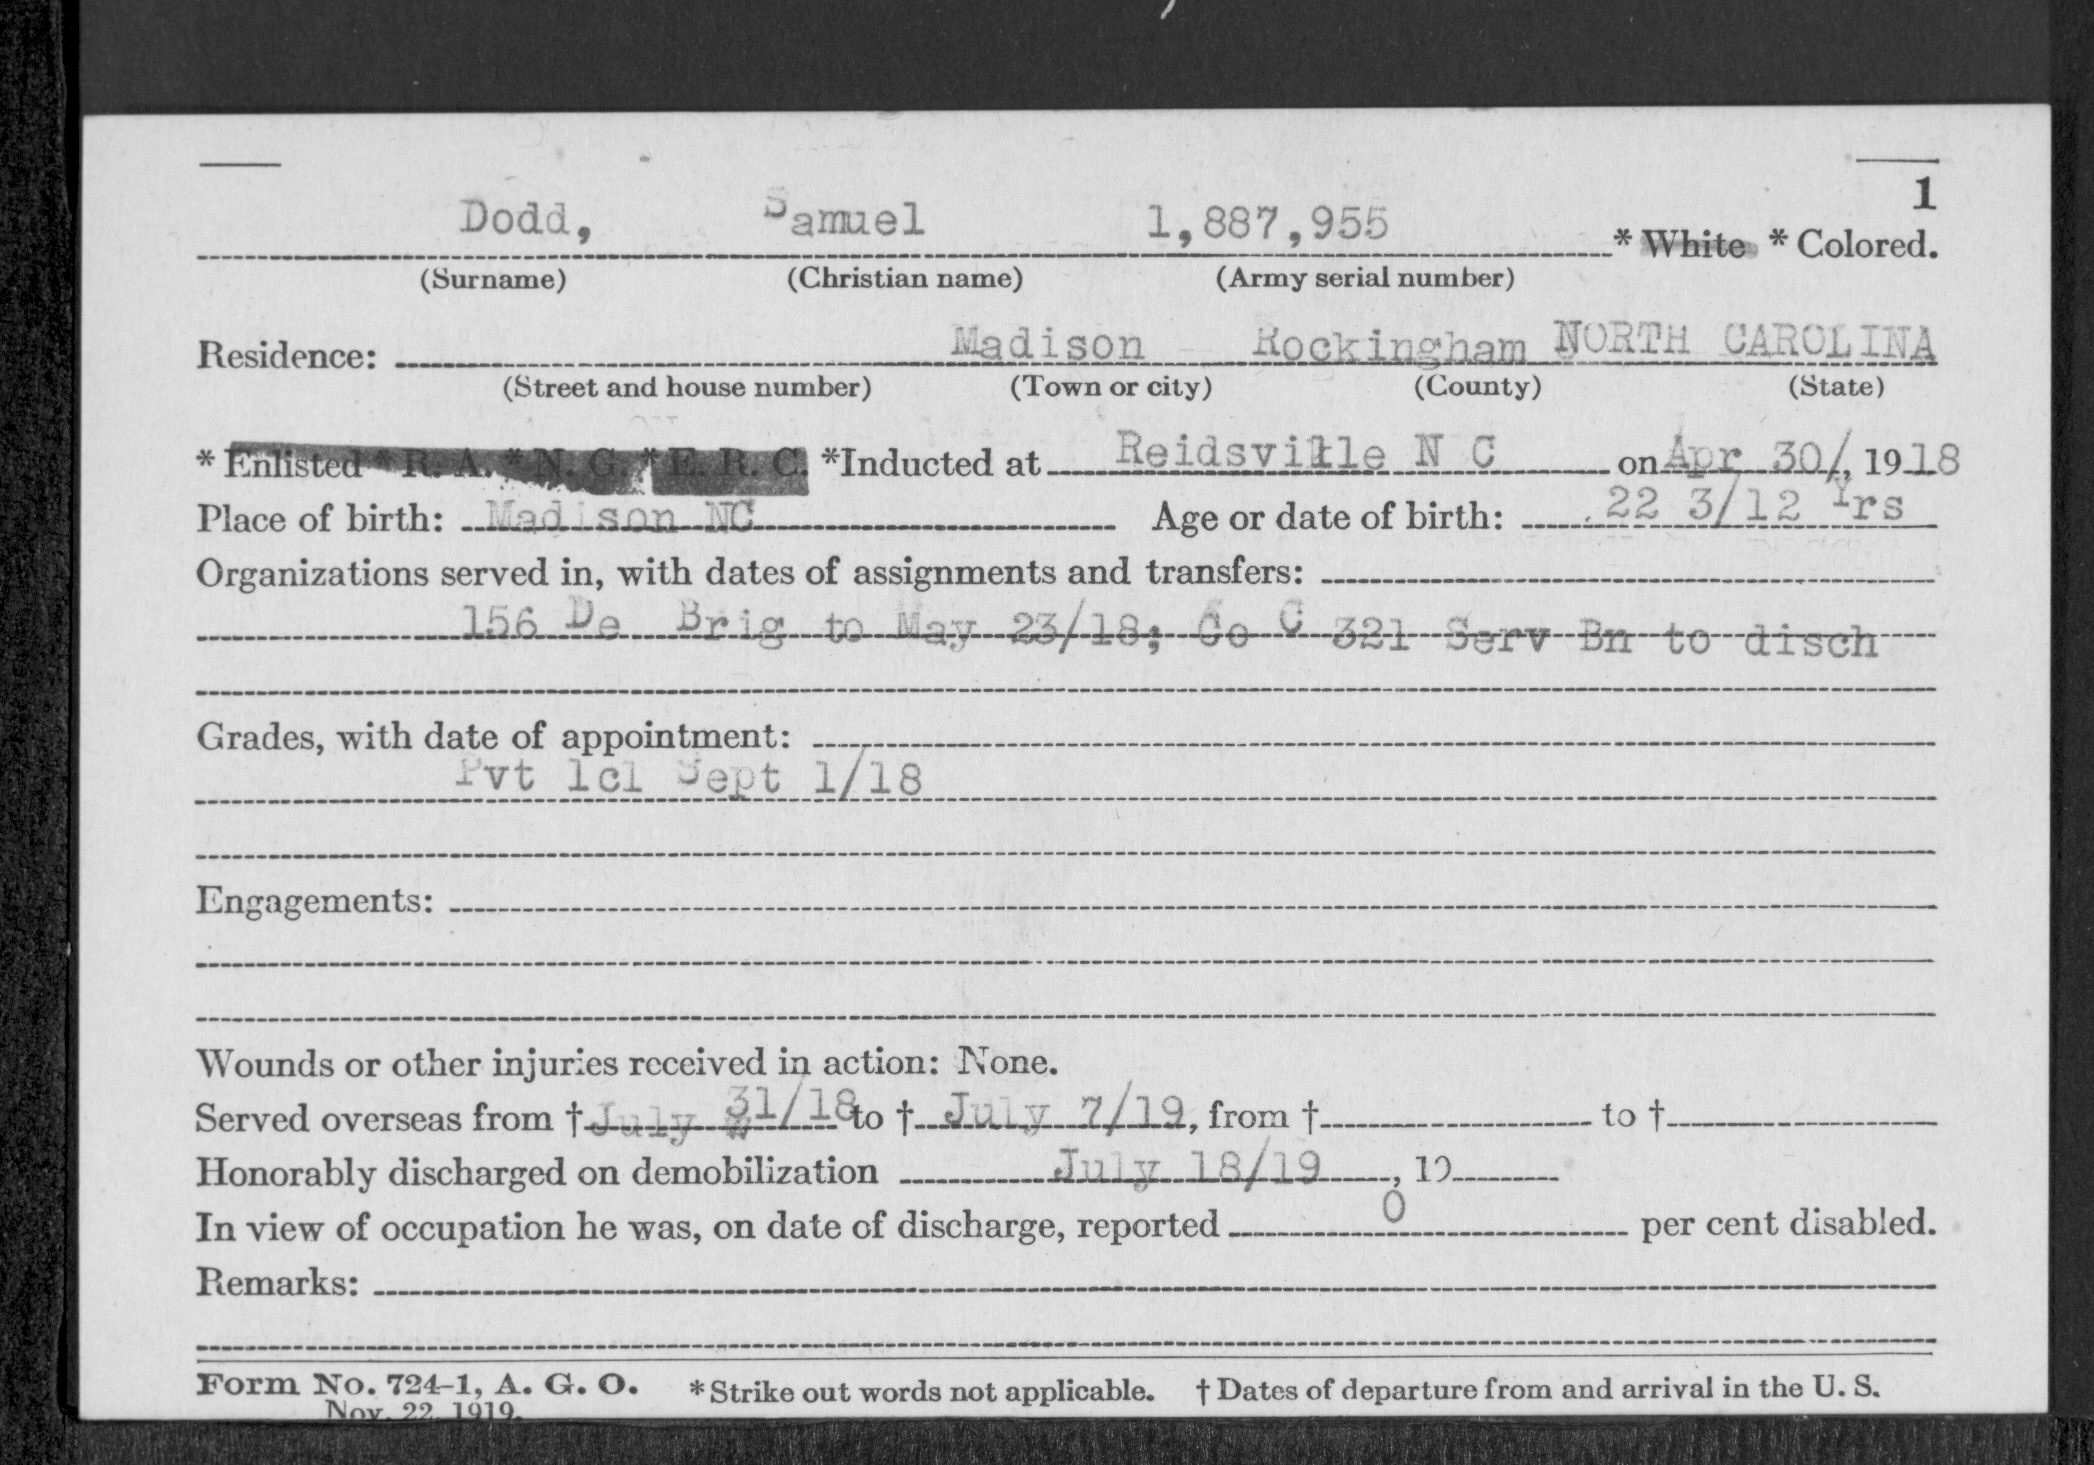 1
Dodd, Samuel 1,887,955 * White * Colored.
(Surname) (Christian name) (Army serial number)
Residence: Madison Rockingham NORTH CAROLINA
(Street and house number) (Town or city) (County) (State)
* Enlisted * R. A. * N. G. * E. R. C. *Inducted at Reidsville N C on Apr 30/, 1918
Place of birth: Madison NC Age or date of birth: 22 3/12 Yrs
Organizations served in, with dates of assignments and transfers:
156 De Brig to May 23/18; Co C 321 Serv Bn to disch
Grades, with date of appointment:
Pvt 1cl Sept 1/18
Engagements:
Wounds or other injuries received in action: None.
Served overseas from † July 31/18 to † July 7/19, from † to †
Honorably discharged on demobilization July 18/19, 19
In view of occupation he was, on date of discharge, reported 0 per cent disabled.
Remarks:
Form No. 724-1, A. G. O. * Strike out words not applicable. † Dates of departure from and arrival in the U. S.
Nov. 22, 1919.